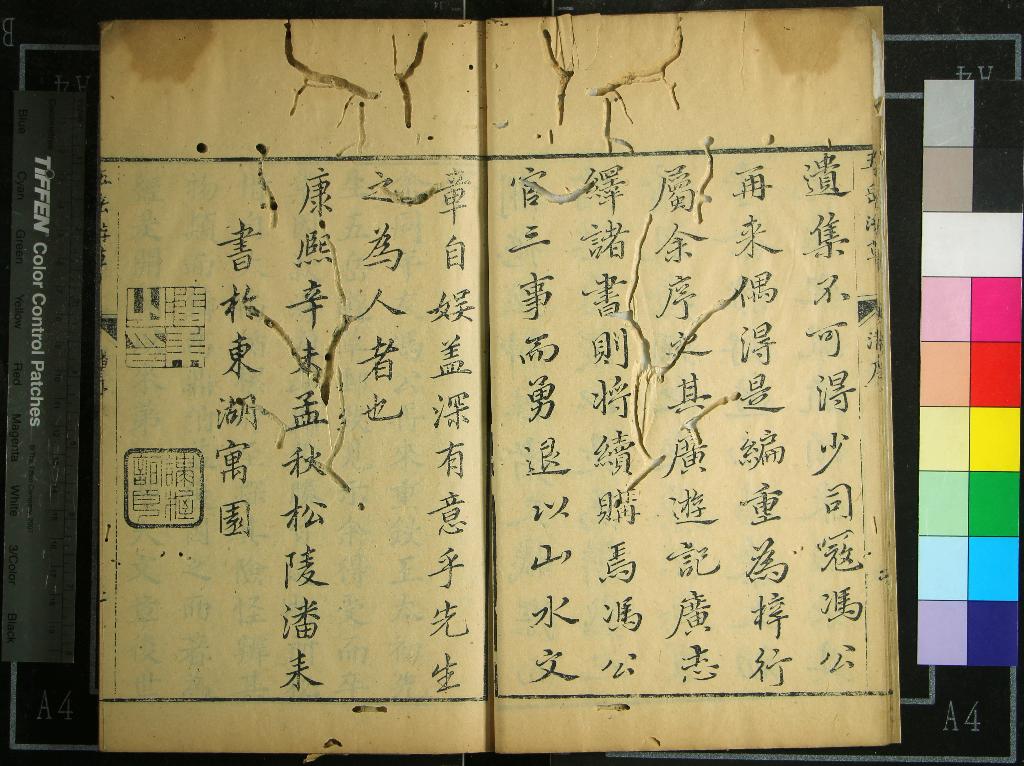 遺集不可得少司寇馮公
再来偶得是編重為梓行
屬余序之其廣遊記廣志
繹諸書則將續購焉馮公
官三事而勇退以山水文
章自娱盖深有意乎先生
之為人者也
康熈辛未孟秋松陵潘耒
書於東湖寓園
TIFFEN Color Control Patches
Blue Cyan Green Yellow Red Magenta White 3/Color Black
A4
A4
A4
A4
B